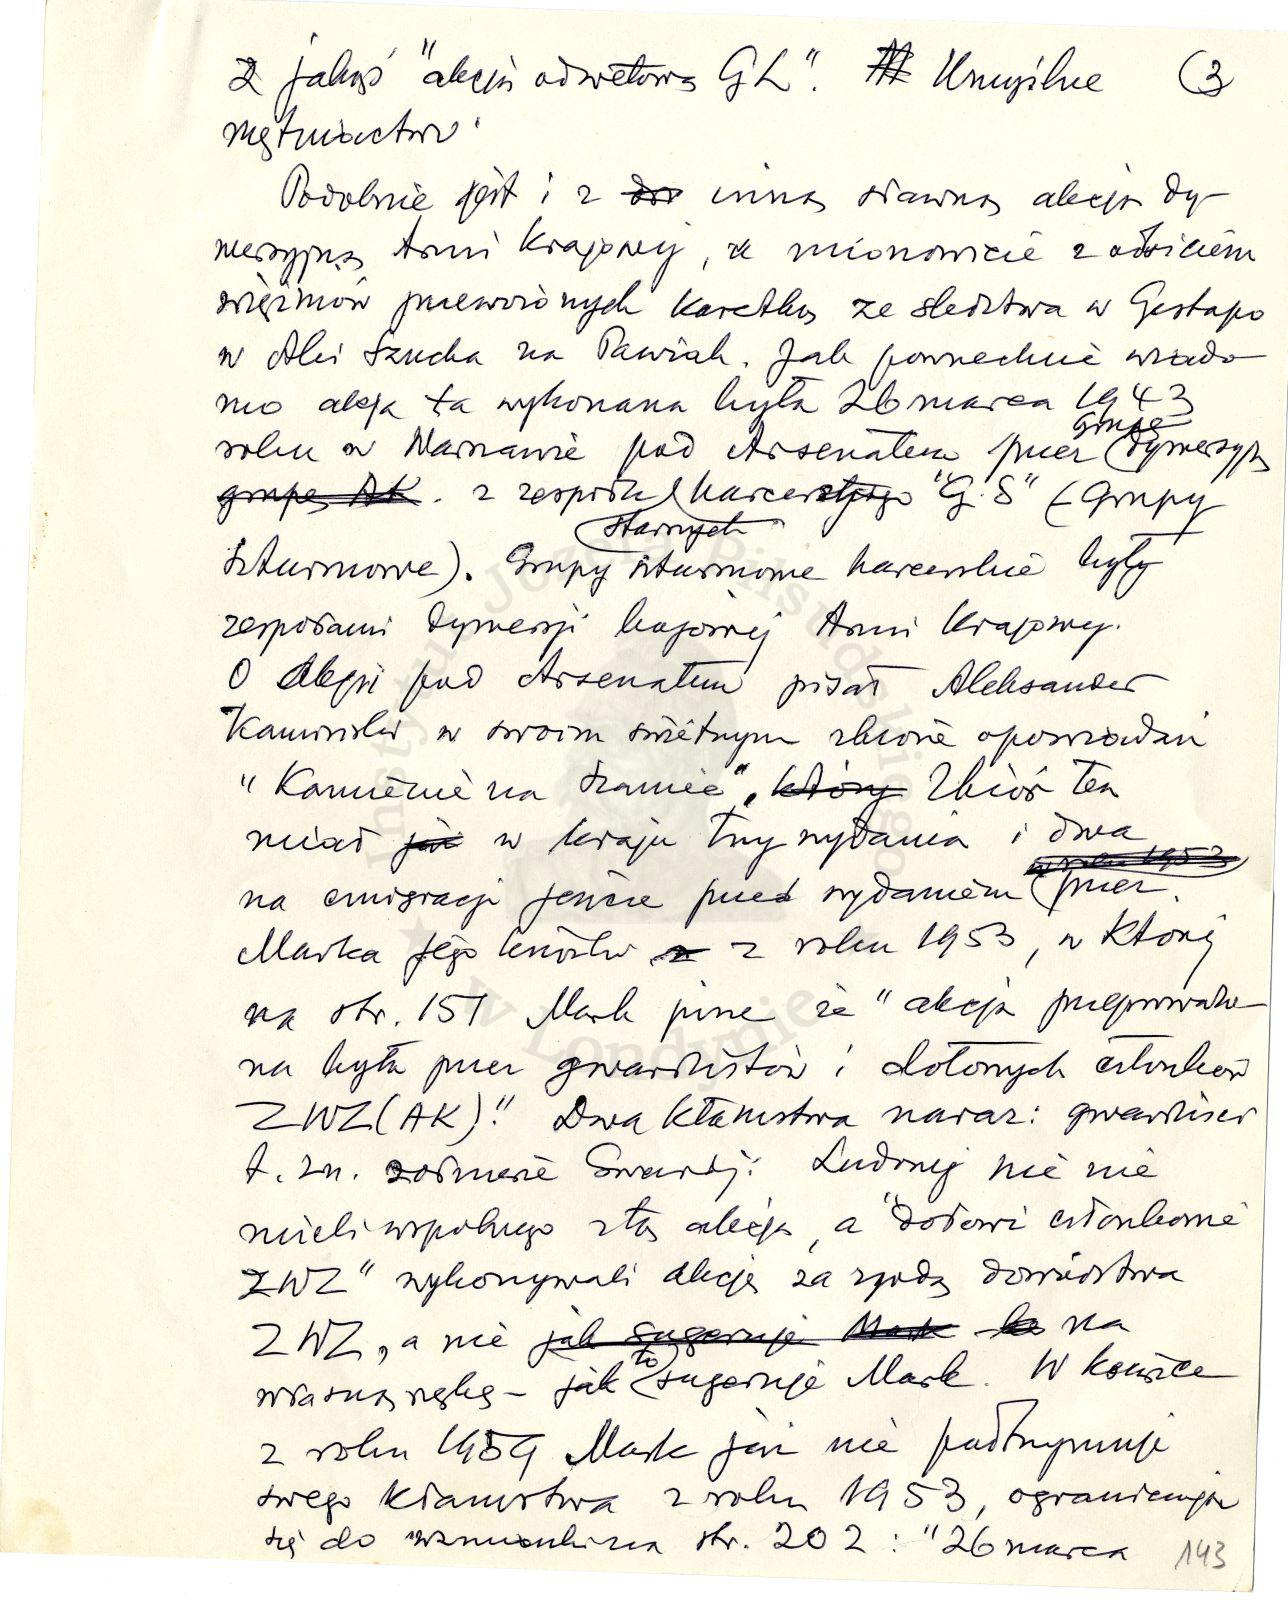 z jakąś "akcją odwetową GL". Umyślne (3
mętniactwo.
Podobnie jest i z inną sławną akcją dy-
wersyjną Armi Krajowej, a mianowicie z odbiciem
więźniów przewożonych karetką ze śledztwa w Gestapo
w Alei Szucha na Pawiak. Jak powszechnie wiado-
mo akcja ta wykonana była 26 marca 1943
roku w Warszawie pod Arsenałem przez grupę dywersyjną
grupę AK. z zespołu harcerskiego "G.S" (Grupy
starszych
Szturmowe). Grupy szturmowe harcerskie były
zespołami dywersji bojowej Armi Krajowej.
O akcji pod Arsenałem pisał Aleksander
Kamiński w swoim świetnym zbiorze opowiadań
"Kamienie na Szaniec", który Zbiór ten
miał już w kraju trzy wydania i dwa
w roku 1953
na emigracji jeszcze przed wydaniem przez
Marka jego książki z roku 1953, w której
na str. 151 Mark pisze że "akcja przeprowadzo-
na była przez gwardzistów i dołowych członków
ZWZ (AK)!" Dwa kłamstwa naraz: gwardziści
t. zn. żołnierze Gwardji Ludowej nic nie
mieli wspólnego z tą akcją, a "dołowi członkowie
ZWZ" wykonywali akcję za zgodą dowództwa
ZWZ, a nie jak sugeruje Mark na
własną rękę – jak to sugeruje Mark. W książce
z roku 1959 Mark już nie podtrzymuje
swego kłamstwa z roku 1953, ograniczając
się do str. 202: "26 marca 143
Instytut Józefa Piłsudskiego
w Londynie